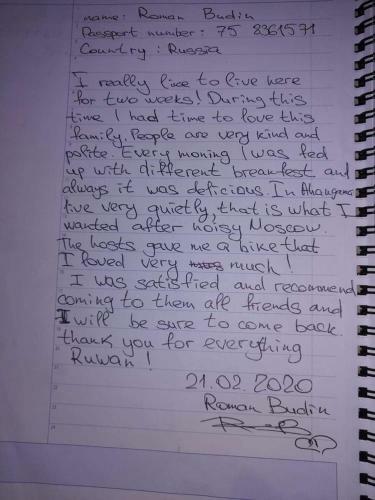 name: Roman Budin
Passport number: 75 8361571
Country: Russia
I really like to live here
for two weeks! During this
time I had time to love this
family. People are very kind and
polite. Every morning I was fed
up with different breakfest and
always it was delicious. In Ahangama
live very quietly, that is what I
wanted after noisy Moscow.
The hosts gave me a bike that
I loved very much!
I was satisfied and recommend
coming to them all friends and
I will be sure to come back.
thank you for everything
Ruwan!
21.02.2020
Roman Budin